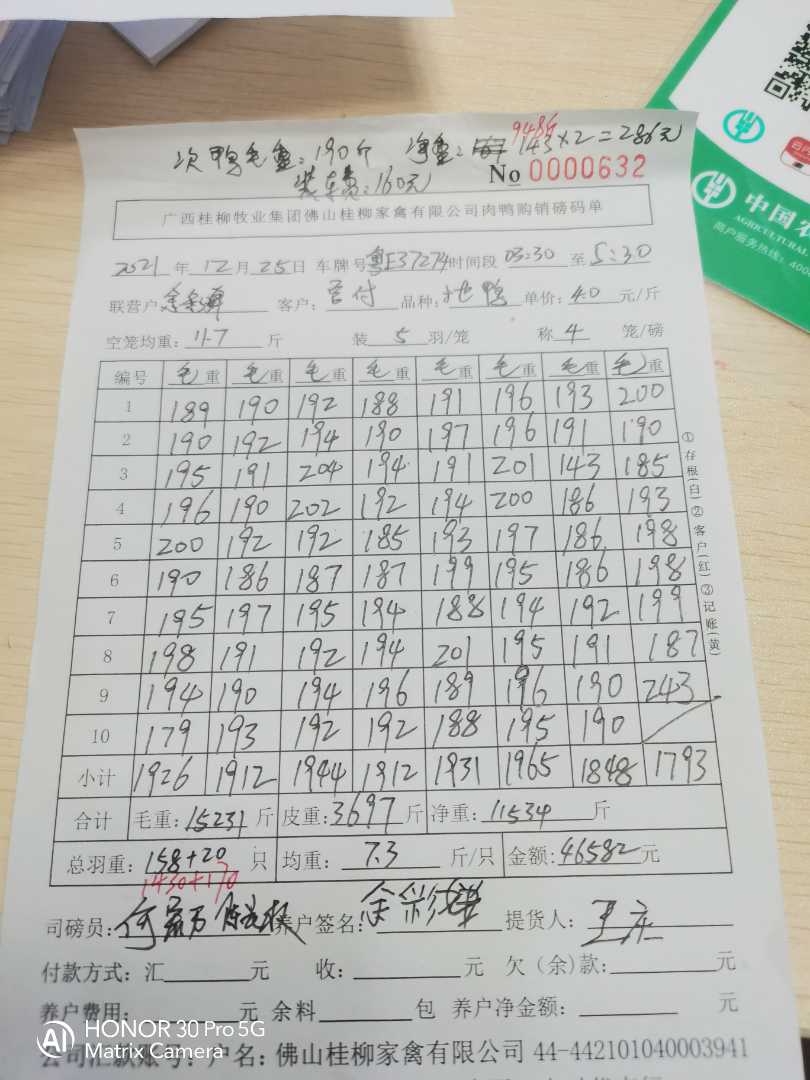 次鸭毛重:190斤 净重: 143×2=286元
948斤
装车费:160元 No 0000632
广西桂柳牧业集团佛山桂柳家禽有限公司肉鸭购销磅码单
2021 年 12 月 25 日 车牌号 粤E37274 时间段 03:30 至 5:30
联营户: 客户: 品种: 地鸭 单价: 4.0 元/斤
空笼均重: 11.7 斤 装 5 羽/笼 称 4 笼/磅
编号 毛重 毛重 毛重 毛重 毛重 毛重 毛重 毛重
1 189 190 192 188 191 196 193 200
2 190 192 194 190 197 196 191 190
3 195 191 204 194 191 201 143 185
4 196 190 202 192 194 200 186 193
5 200 192 192 185 193 197 186 198
6 190 186 187 187 199 195 186 198
7 195 197 195 194 188 194 192 199
8 198 191 192 194 201 195 191 187
9 194 190 194 196 189 196 190 243
10 179 193 192 192 188 195 190
小计 1926 1912 1944 1912 1931 1965 1848 1793
合计 毛重: 15231 斤 皮重: 3697 斤 净重: 11534 斤
总羽重: 158+20 只 均重: 7.3 斤/只 金额: 46582 元
1430+170
司磅员: 养户签名: 余彩 提货人: 王
付款方式:汇 元 收: 元 欠(余)款: 元
养户费用: 元 余料 包 养户净金额: 元
公司汇款账号:户名:佛山桂柳家禽有限公司 44-442101040003941
①存根(白)②客户(红)③记账(黄)
中国农
AGRICULTURAL
商户服务热线: 400
HONOR 30 Pro 5G
AI Matrix Camera